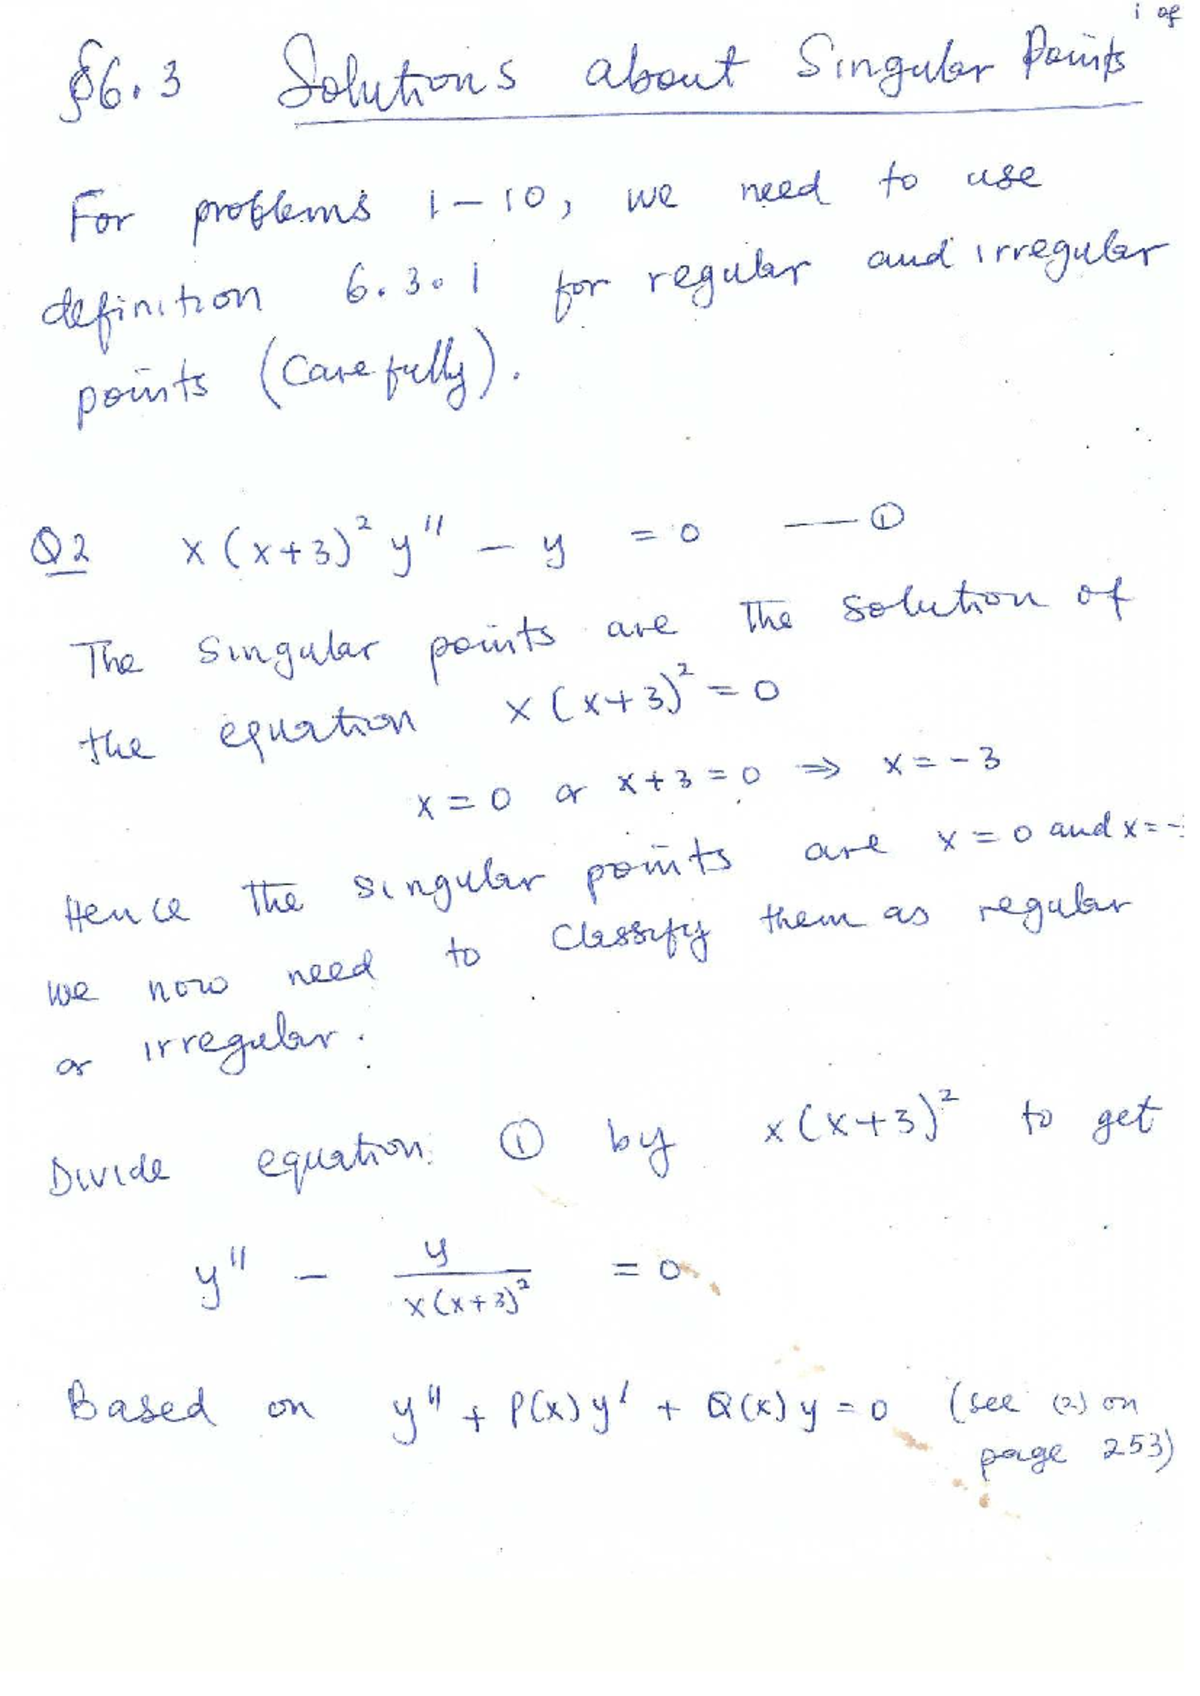 i of
§6.3 Solutions about Singular Points
For problems 1-10, we need to use
definition 6.3.1 for regular and irregular
points (Carefully).
Q2 x(x+3)² y'' - y = 0 —①
The singular points are the solution of
the equation x(x+3)² = 0
x = 0 or x+3 = 0 ⇒ x = -3
Hence the singular points are x = 0 and x = -3
we now need to classify them as regular
or irregular.
Divide equation ① by x(x+3)² to get
y'' - y/(x(x+3)²) = 0
Based on y'' + P(x)y' + Q(x)y = 0 (see (2) on
page 253)